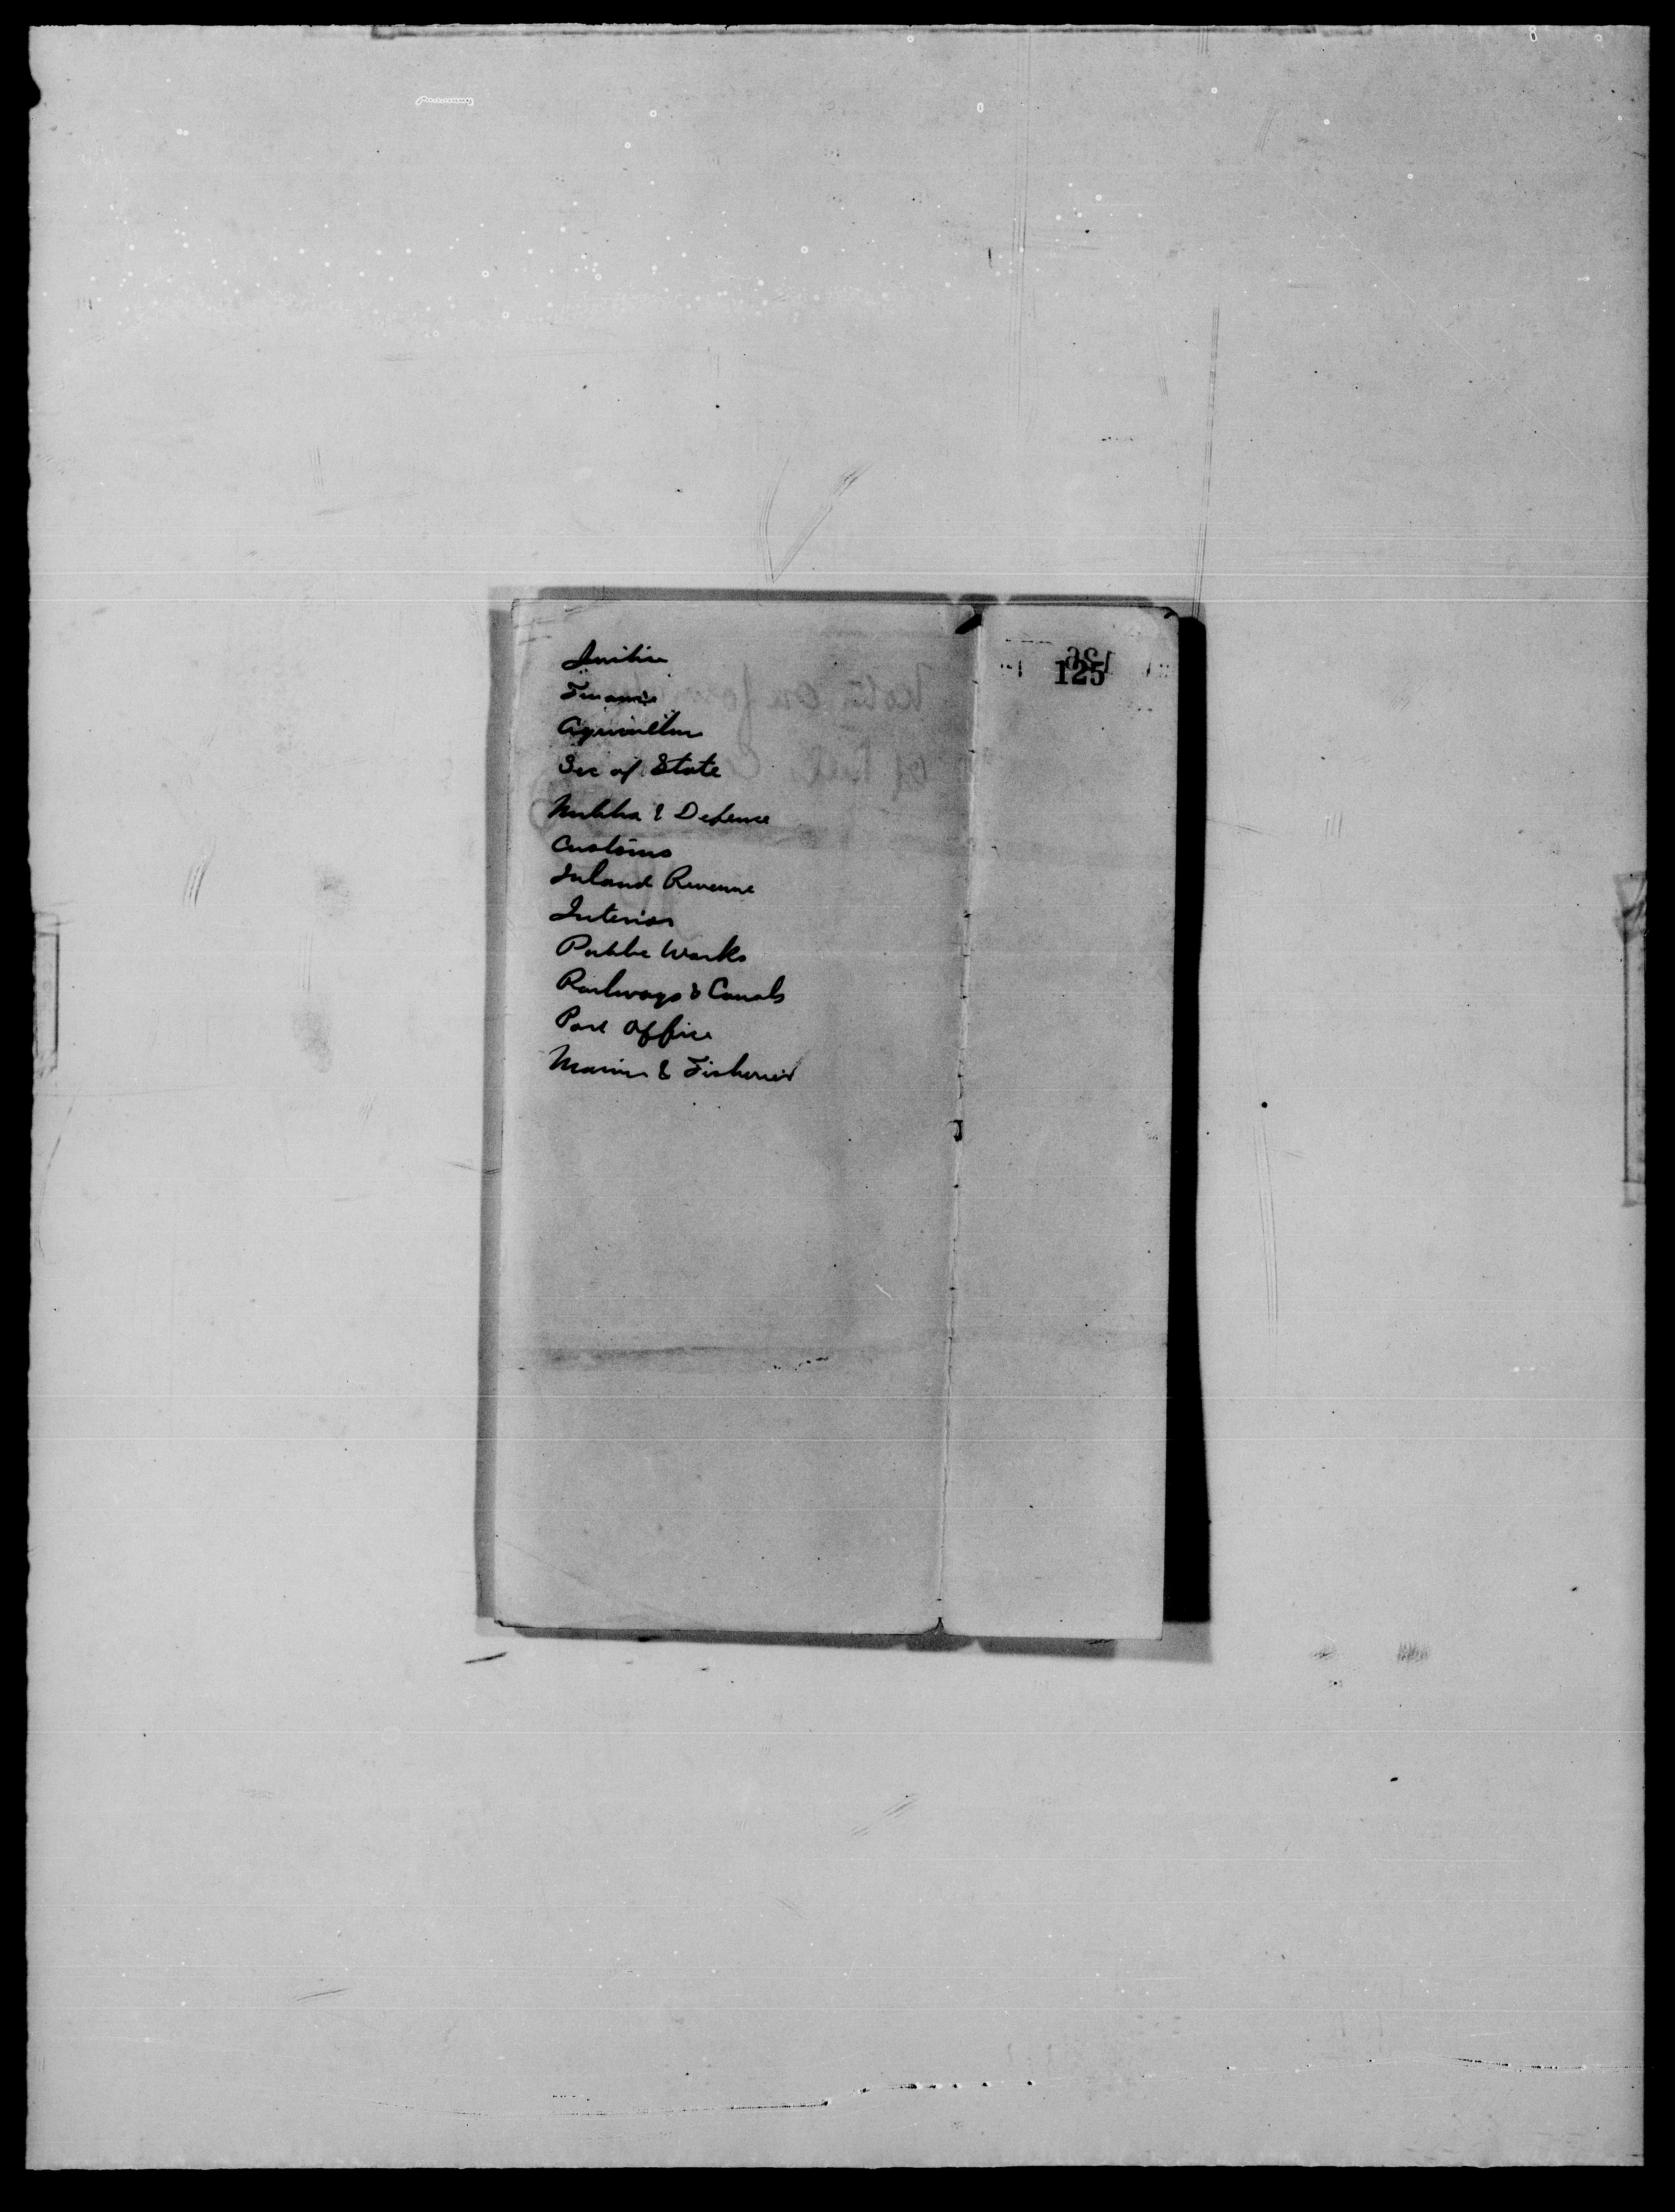 125
Justice
Finance
Agriculture
Sec of State
Militia & Defence
Customs
Inland Revenue
Interior
Public Works
Railways & Canals
Post Office
Marine & Fisheries